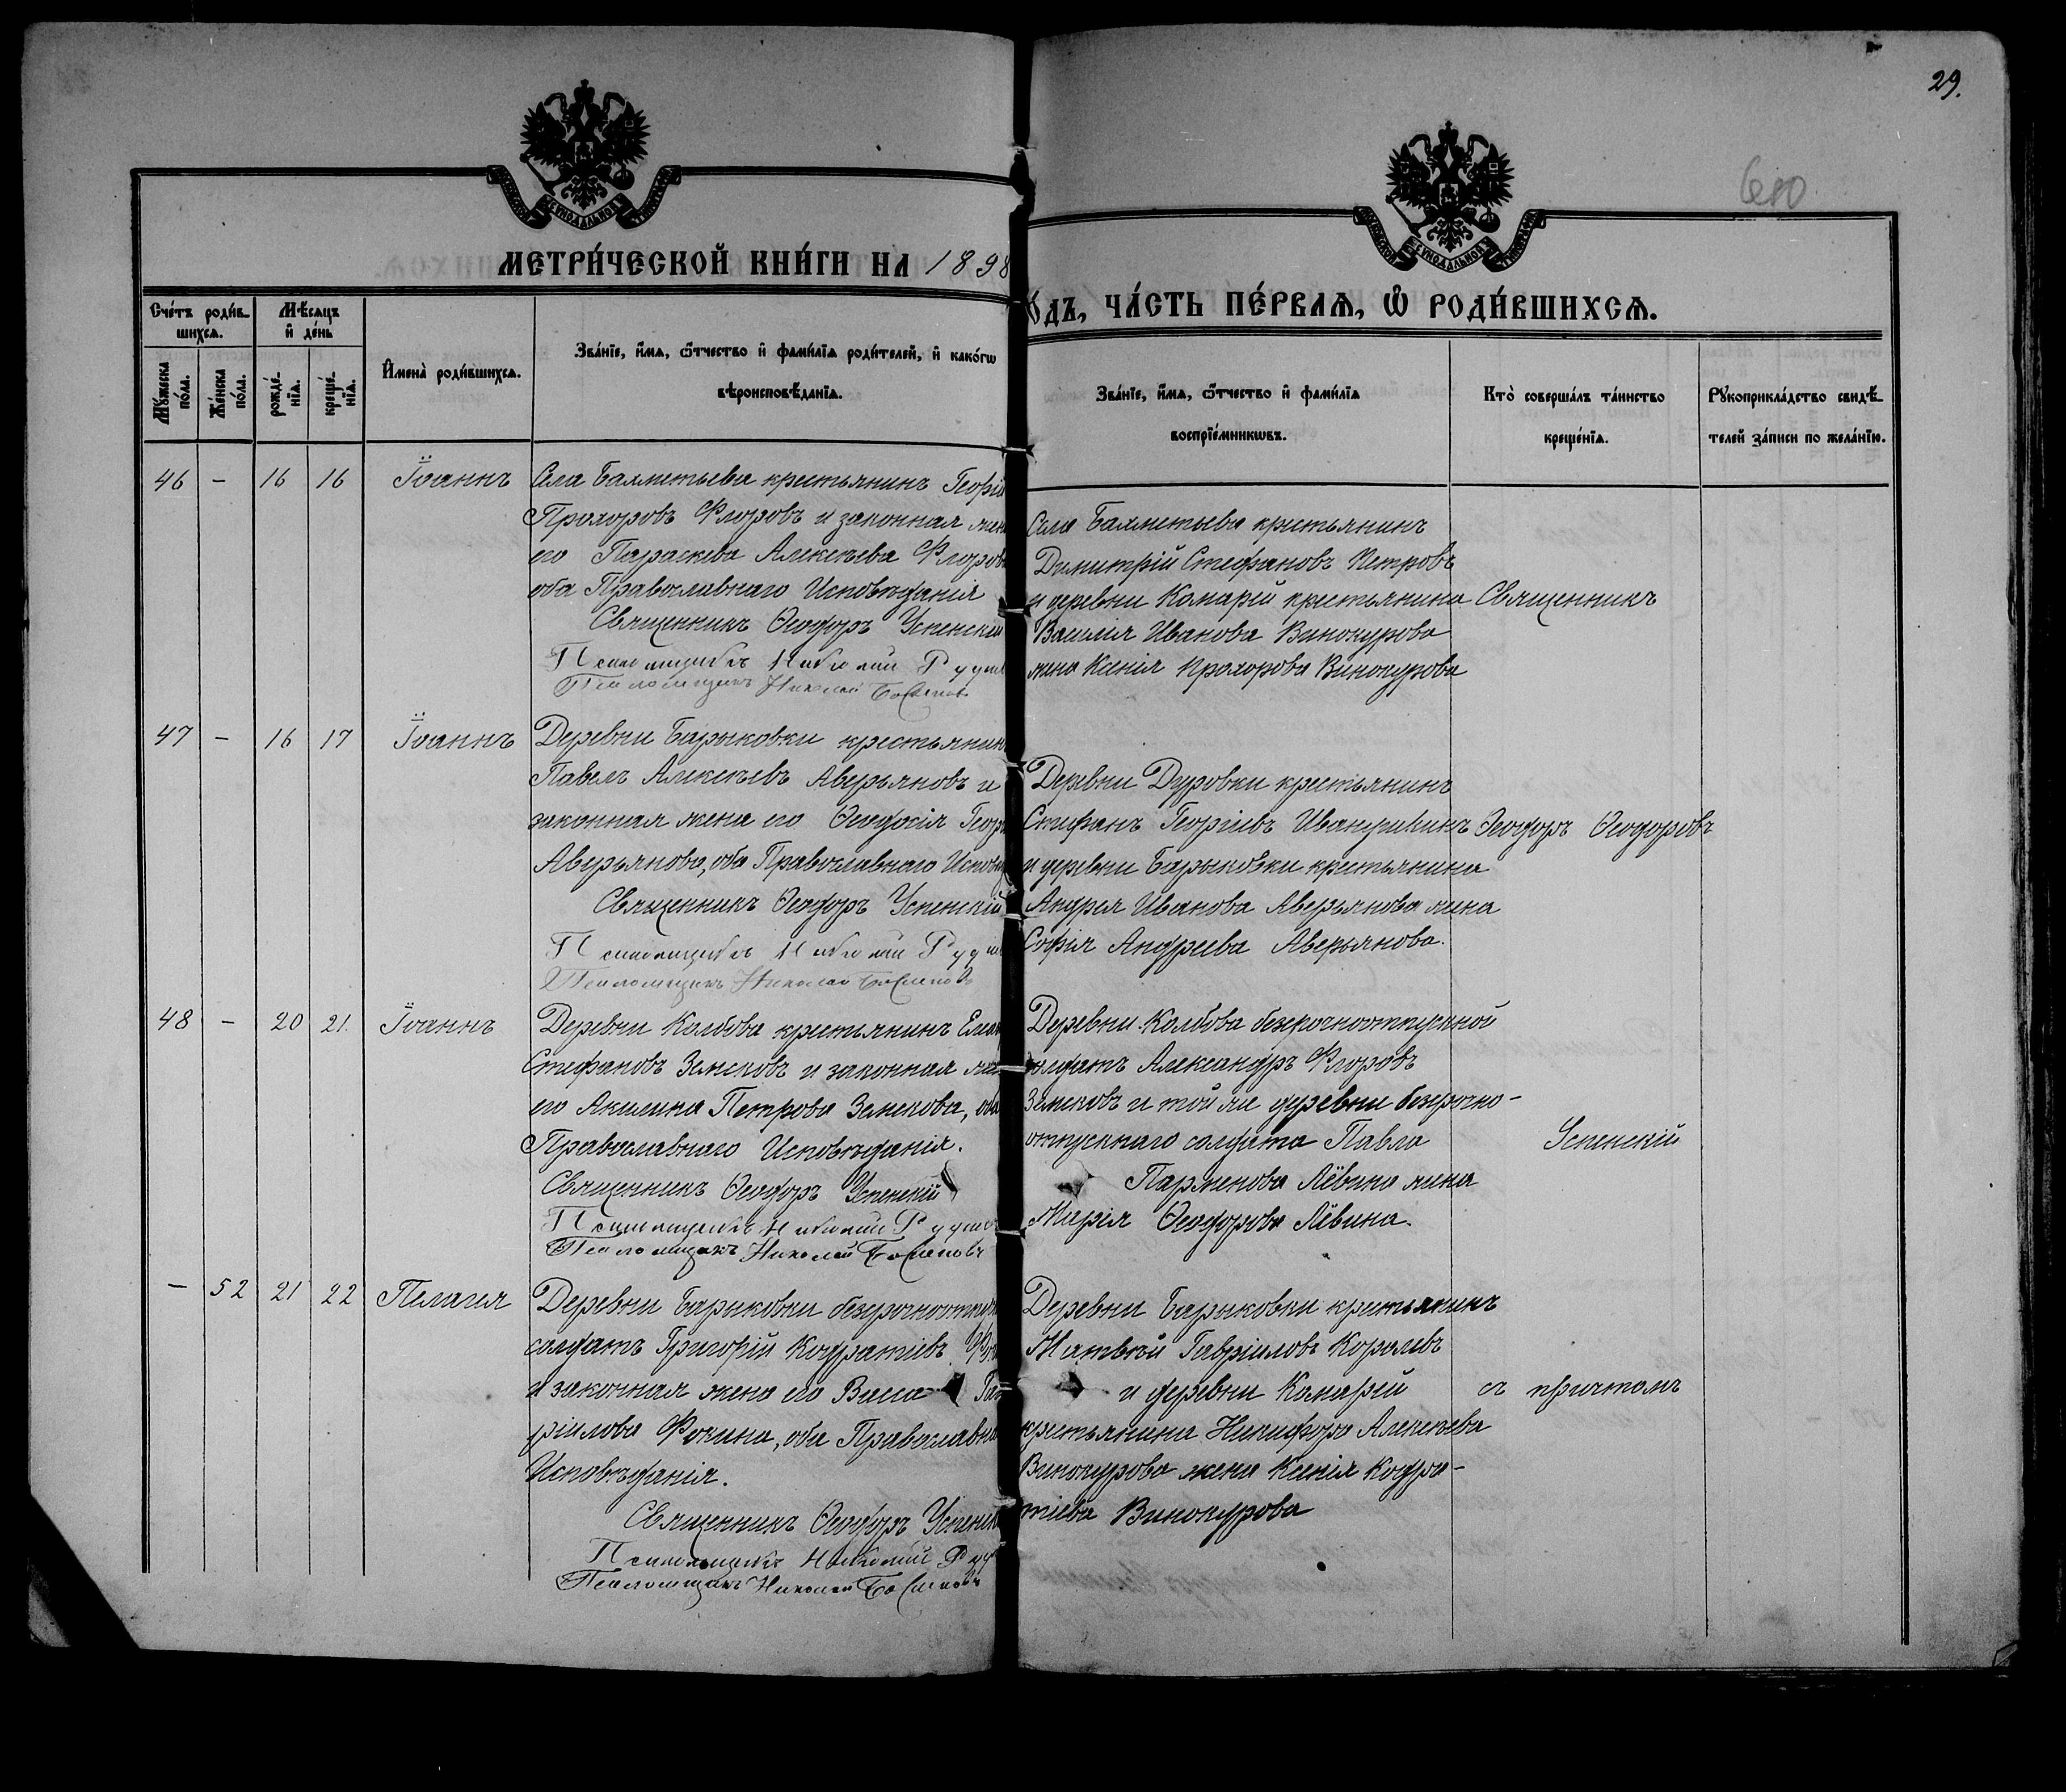 29.
МЕТРИ́ЧЕСКОЙ КНИ́ГИ НА 1898
ОДЪ, ЧА́СТЬ ПЕ́РВАѦ, Ѡ РОДИ́ВШИХСѦ.
Сче́тъ роди́в-
шихсѧ.
Мѣ́сѧцъ
и҆ де́нь
Мꙋ́жеска
по́ла.
Же́нска
по́ла.
рожде́-
нїѧ.
креще́-
нїѧ.
И҆мена̀ роди́вшихсѧ.
Зва́нїе, и҆́мѧ, ѻ҆́тчество и҆ фами́лїѧ роди́телей, и҆ како́гѡ
вѣроисповѣ́данїѧ.
Зва́нїе, и҆́мѧ, ѻ҆́тчество и҆ фами́лїѧ
воспрїе́мникѡвъ.
Кто̀ соверша́лъ та́инство
креще́нїѧ.
Рꙋкоприкла́дство свидѣ́-
телей за́писи по жела́нїю.
46 - 16 16 Іоаннъ
Села Бахметьева крестьянинъ Георгі
Прохоровъ Флоровъ и законная жен
его Параскева Алексѣева Флоров
оба Православнаго Исповѣданія
Священникъ Ѳеодоръ Успенскій
Псаломщикъ Николай Рудн
Псаломщикъ Николай
Села Бахметьева крестьянинъ
Димитрій Стефановъ Петровъ
и деревни Комарей крестьянина
Василія Иванова Винокурова
жена Ксенія Прохорова Винокурова
Священникъ
47 - 16 17 Іоаннъ
Деревни Барыковки крестьянин
Павелъ Алексѣевъ Аверьяновъ и
законная жена его Ѳеодосія Геор
Аверьянова, оба Православнаго Исповѣ
Священникъ Ѳеодоръ Успенскій
Псаломщикъ Николай Рудн
Псаломщикъ Николай
Деревни Дуровки крестьянинъ
Стефанъ Георгіевъ
и деревни Барыковки крестьянина
Андрея Иванова Аверьянова жена
Софія Андреева Аверьянова.
Ѳеодоръ Ѳеодоровъ
48 - 20 21. Іоаннъ
Деревни Колбова крестьянинъ
Стефановъ Земсковъ и законная жен
его Акилина Петрова Земскова, оба
Православнаго Исповѣданія.
Священникъ Ѳеодоръ Успенскій
Псаломщикъ Николай Рудн
Псаломщикъ Николай
Деревни Колбова безсрочноотпускной
солдатъ Александръ Флоровъ
Земсковъ и той же деревни безсрочно-
отпускнаго солдата Павла
Парменова Лёвина жена
Марія Ѳеодорова Лёвина.
Успенскій
- 52 21 22 Пелагея
Деревни Барыковки безсрочноотпуск
солдатъ Григорій Кодратіевъ Фок
и законная жена его Васса Гав
ріилова Фокина, оба Православна
Исповѣданія.
Священникъ Ѳеодоръ Успенск
Псаломщикъ Николай Руд
Псаломщикъ Николай
Деревни Барыковки крестьянинъ
Матвѣй Гавріиловъ Королевъ
и деревни Комарей
крестьянина Никифора Алексѣева
Винокурова жена Ксенія Кодра-
тіева Винокурова
съ причтомъ